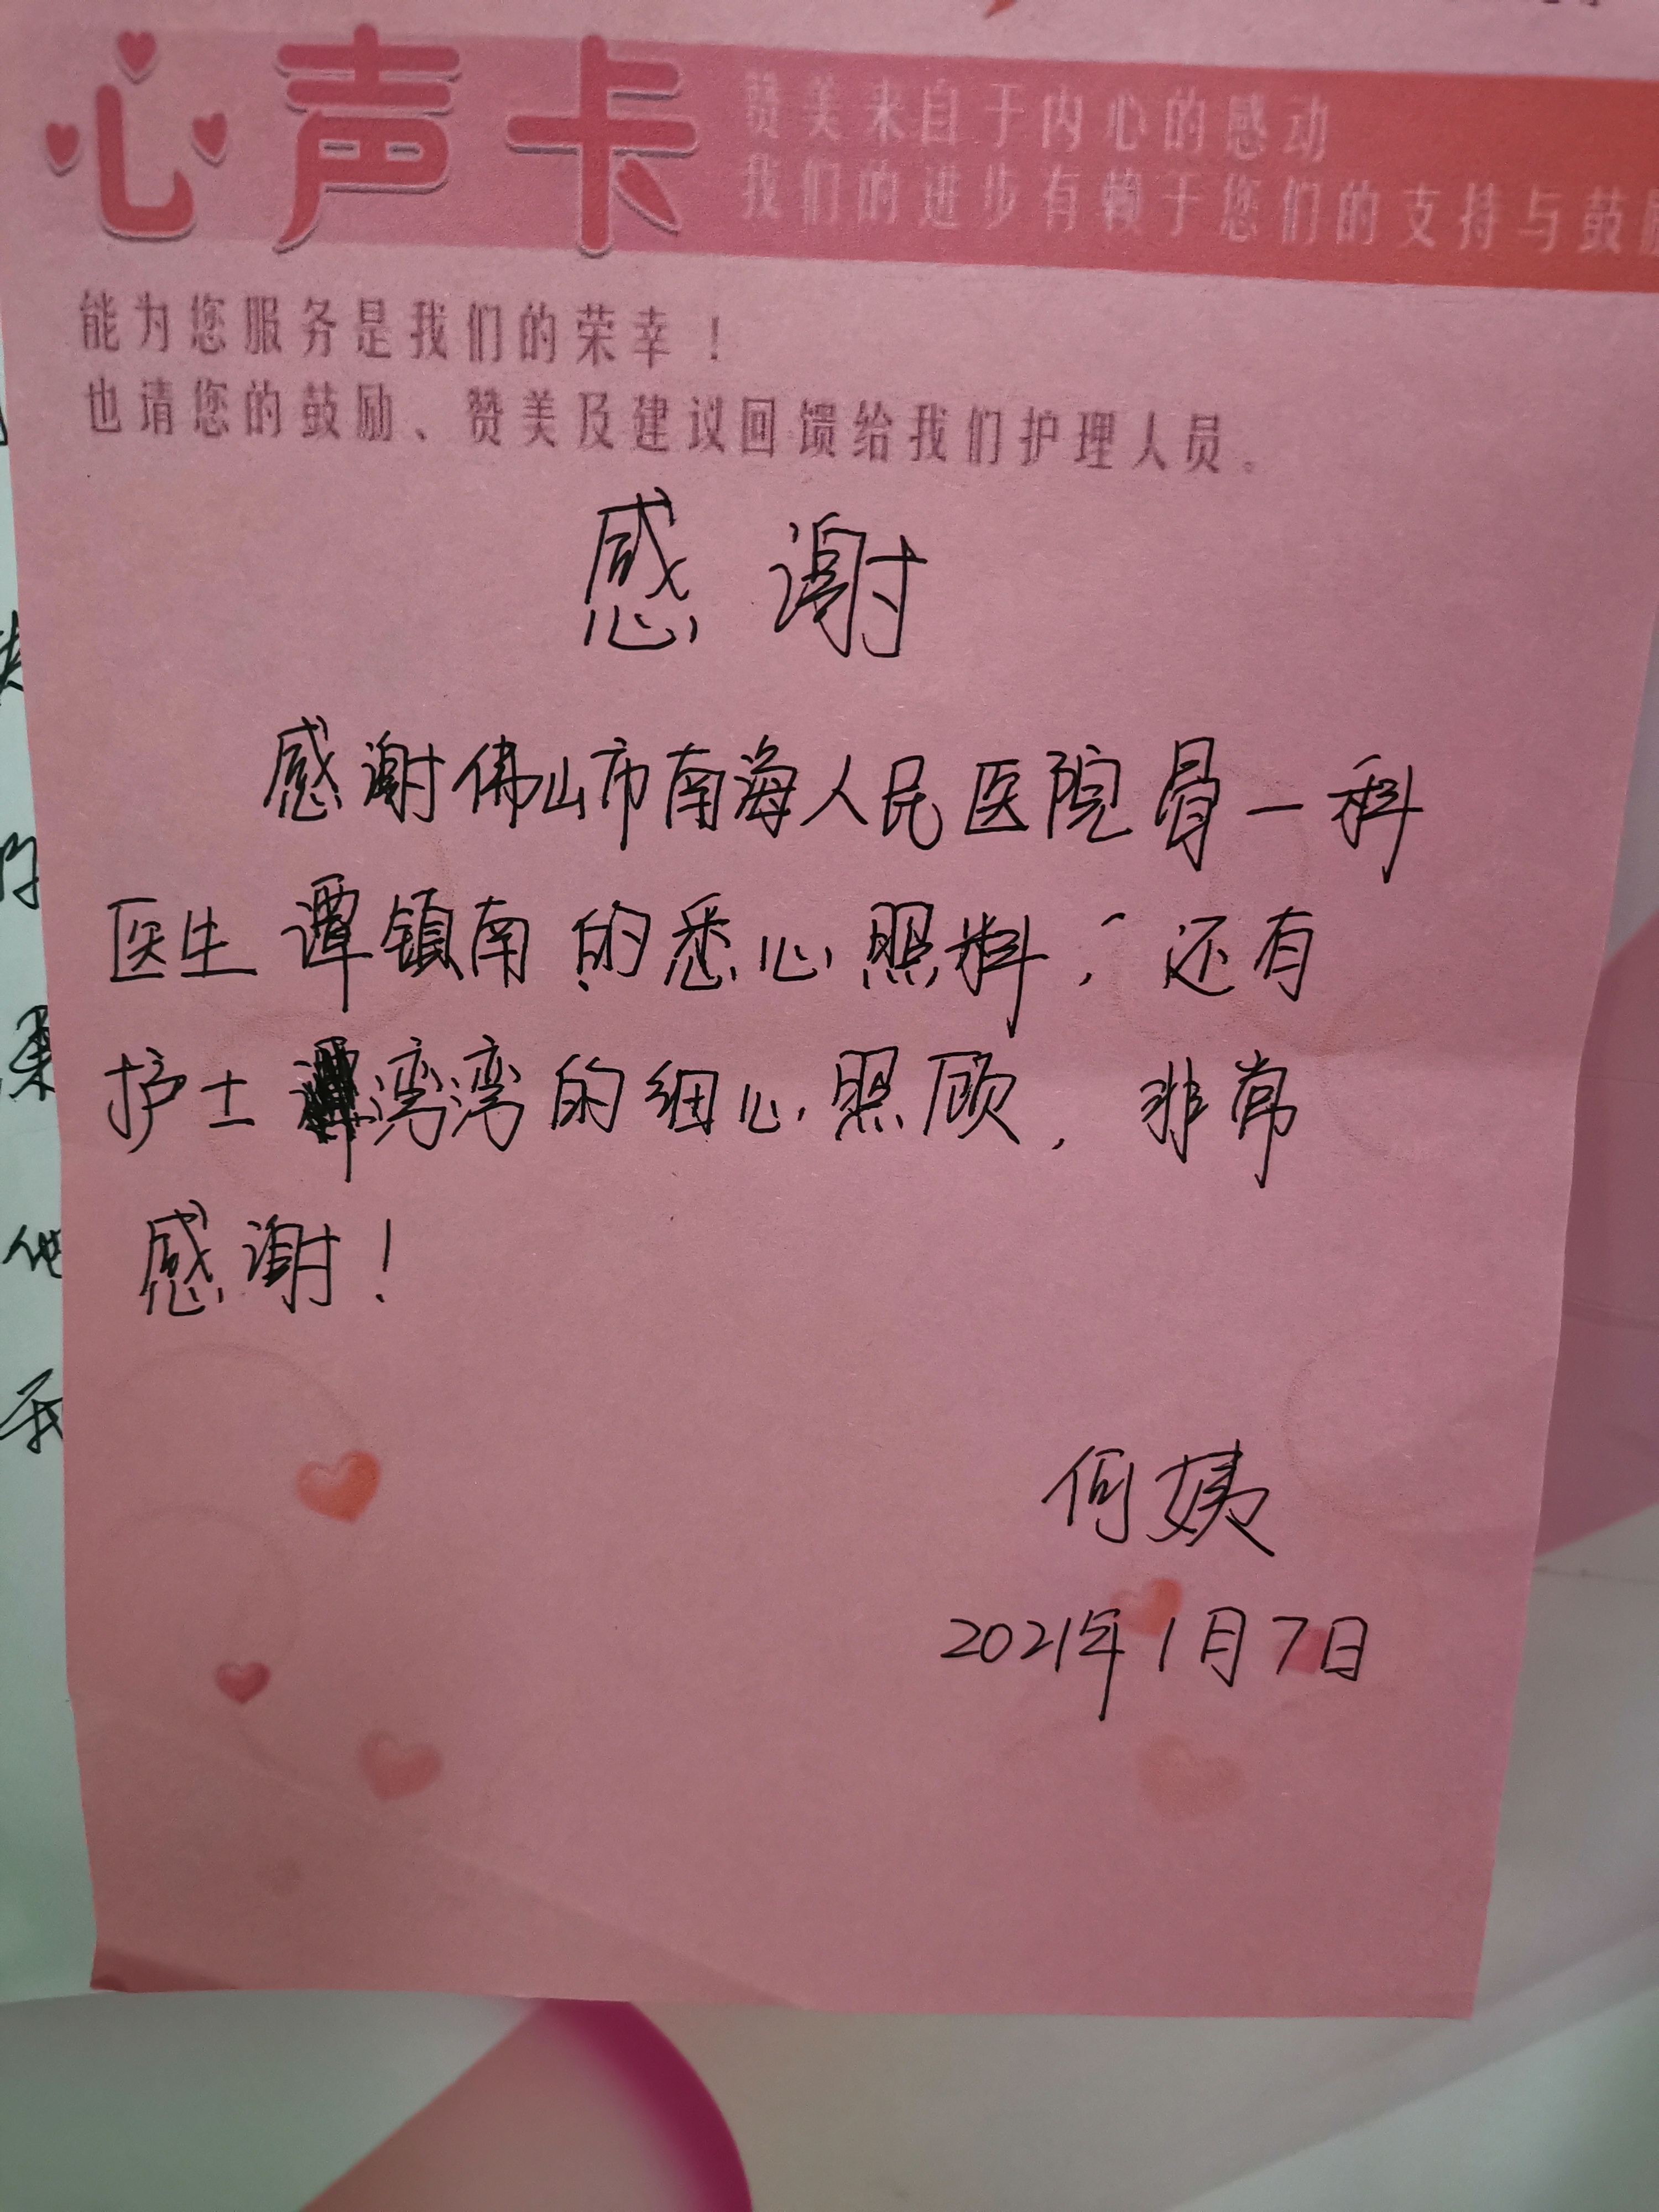 心声卡
赞美来自于内心的感动
我们的进步有赖于您们的支持与鼓励
能为您服务是我们的荣幸！
也请您的鼓励、赞美及建议回馈给我们护理人员。
感谢
感谢佛山市南海人民医院骨一科
医生谭镇南的悉心照料，还有
护士谭湾湾的细心照顾，非常
感谢！
何姨
2021年1月7日
他
我